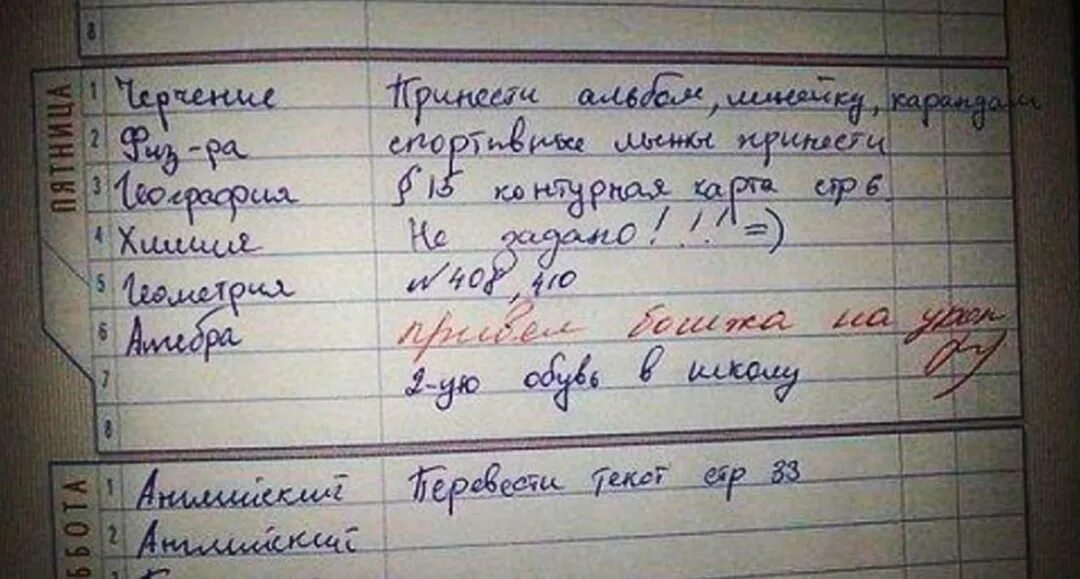 8
ПЯТНИЦА
1 Черчение Принести альбом, линейку, карандаш
2 Физ-ра спортивные лыжы принести
3 География § 15 контурная карта стр 6
4 Химия Не задано!!! =)
5 Геометрия №408, 410
6 Алгебра привел бомжа на урок
7 2-ую обувь в школу
8
ББОТА
1 Английский Перевести текст стр 33
2 Английский